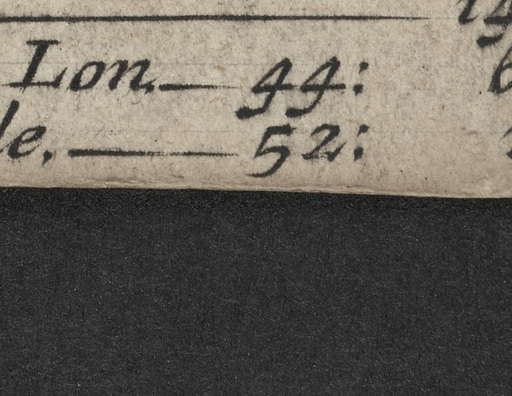 Lon. — 44:
le. — 52: